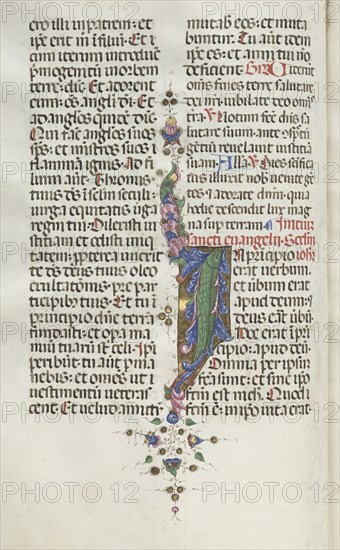 ero illi in patrem: et
ipse erit in filium. Et
cum iterum introduc
primogenitum in orbem
terre: dicit. Et adorent
eum omes angli dei. Et
ad angelos quidem dic.
Qui facit angelos suos
sps: et ministros suos
flammam ignis. Ad fi
lium autem. Thronus
tuus ds in sclm sclī: uir
ga equitatis uirga
regni tui. Dilexisti iu
stitiam et odisti iniqui
tatem: propterea unxit
te ds deus tuus oleo
exultatōnis pre par
ticipibus tuis. Et tu i
principio dne terra
fundasti: et opera ma
nuu tuaru st celi. Ipi
peribut: tu aut pma
nebis: et omes ut
uestimentu ueteras
cent. Et uelud amictu
mutab eos: et muta
buntur. Tu aut idem
ipse es: et anni tui no
deficient.
omes fines terre salutare
dei nri iubilate deo omis
terra. V Notum fec dns sa
lutare suum: ante conspectu
gentiu reuelauit iustitia
suam. Alla. V Dies sctifica
tus illuxit nob uenite gete
s et adorate dnm: quia
hodie descendit lux mag
na sup terram. Initiu
sancti euangelii. Secdm
In pricipio iohe
erat uerbum
et uerbum erat
apud deum: et
deus erat ubu
Hoc erat i pri
cipio apud deu
Omnia per ipsum
facta sunt: et sine ipo
factu est nich. Quod
factu e: in ipo uita erat